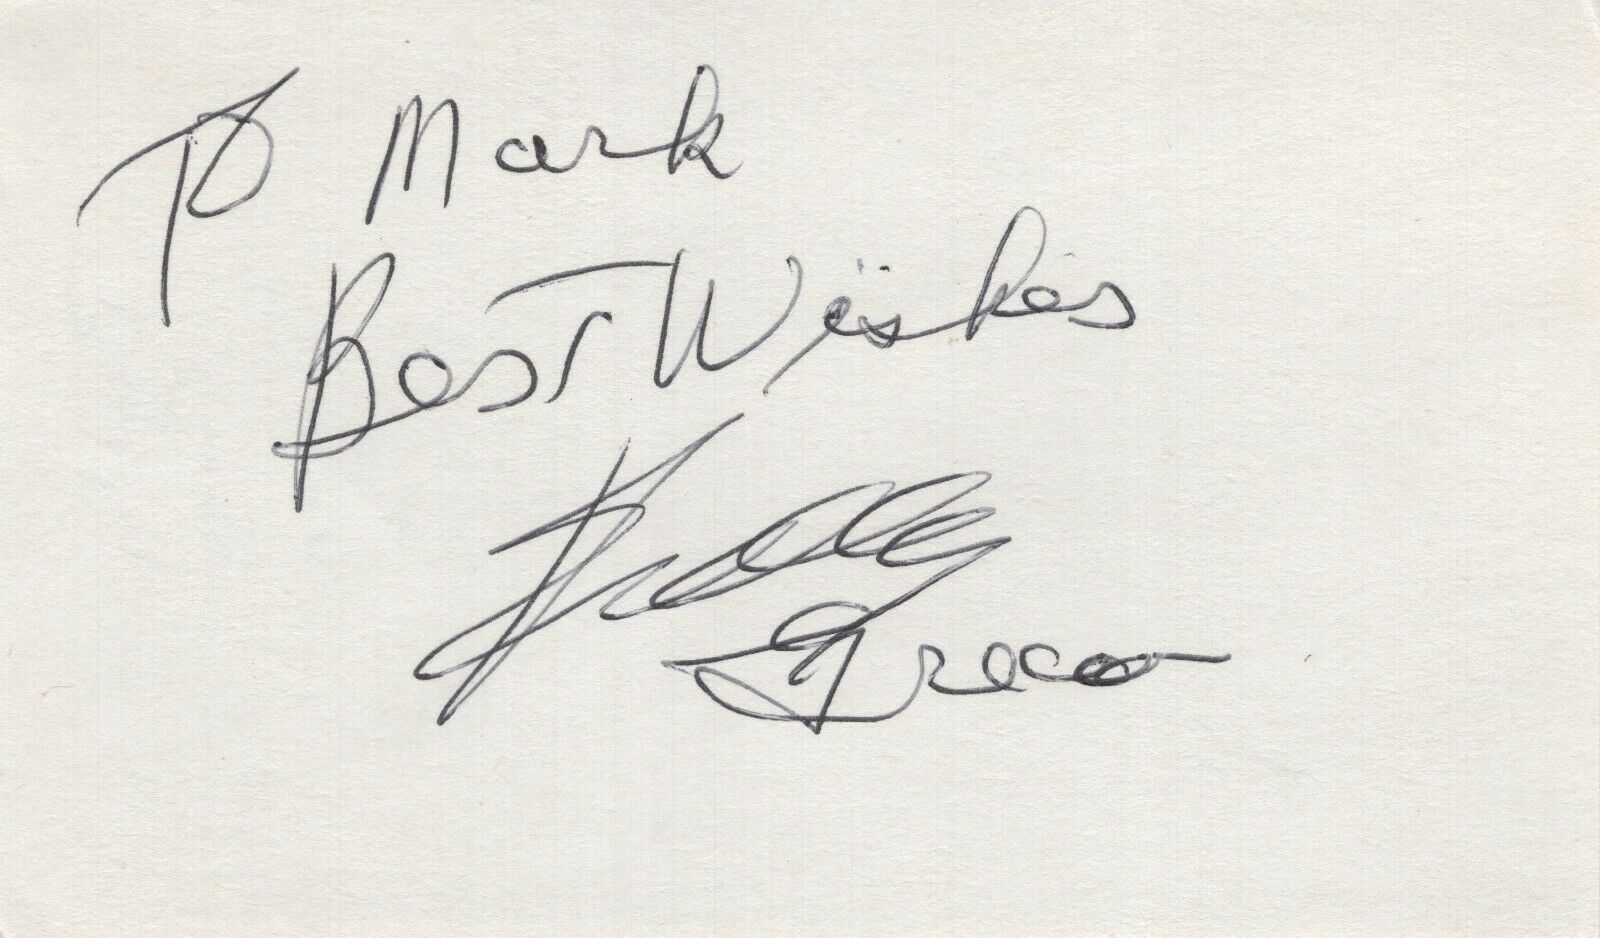 To Mark
Best Wishes
Buddy
Greco